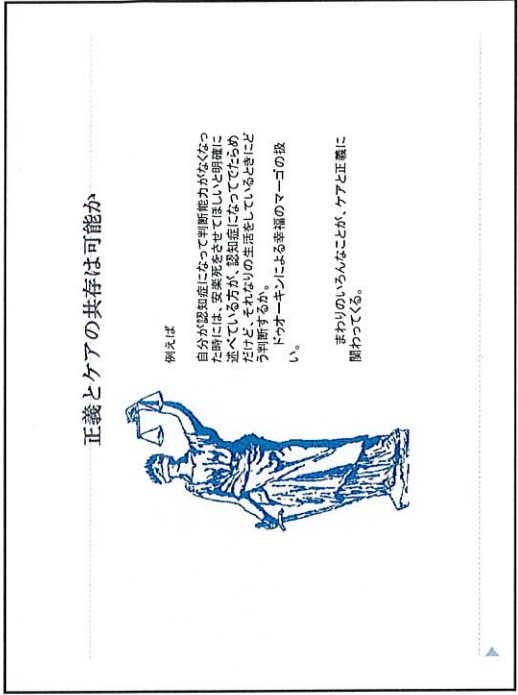 正義とケアの共存は可能か
例えば
自分が認知症になって判断能力がなくなっ
た時には、安楽死をさせてほしいと明確に
述べている方が、認知症になってでたらめ
だけど、それなりの生活をしているときにど
う判断するか。
ドゥオーキンによる幸福のマーゴの扱
い。
まわりのいろんなことが、ケアと正義に
関わってくる。